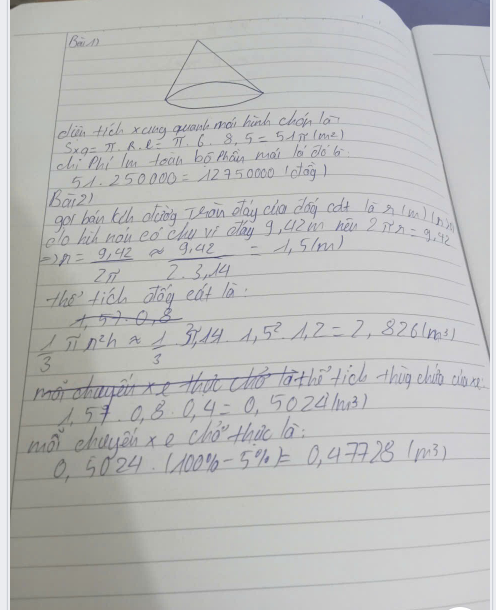 Bài 1)
diện tích xung quanh mái hình chóp là
Sxq = π . R . l = π . 6 . 8,5 = 51π (m2)
chi phí lm toàn bộ phần mái lá đó là
51 . 250000 = 12750000 (đồg)
Bài 2)
gọi bán kíh đường tròn đáy của đốg cát là r (m) (r>0)
do hìh nón có chu vi đáy 9,42m nên 2πr = 9,42
=> r = 9,42 / 2π ≈ 9,42 / 2.3,14 = 1,5 (m)
thể tích đốg cát là:
1,57 . 0,8
1/3 πr²h ≈ 1/3 . 3,14 . 1,5² . 1,2 = 2,826 (m3)
mỗi chuyến xe thực chở là thể tích thùg chứa của xe:
1,57 . 0,8 . 0,4 = 0,5024 (m3)
mỗi chuyến xe chở thực là:
0,5024 . (100% - 5%) = 0,47728 (m3)